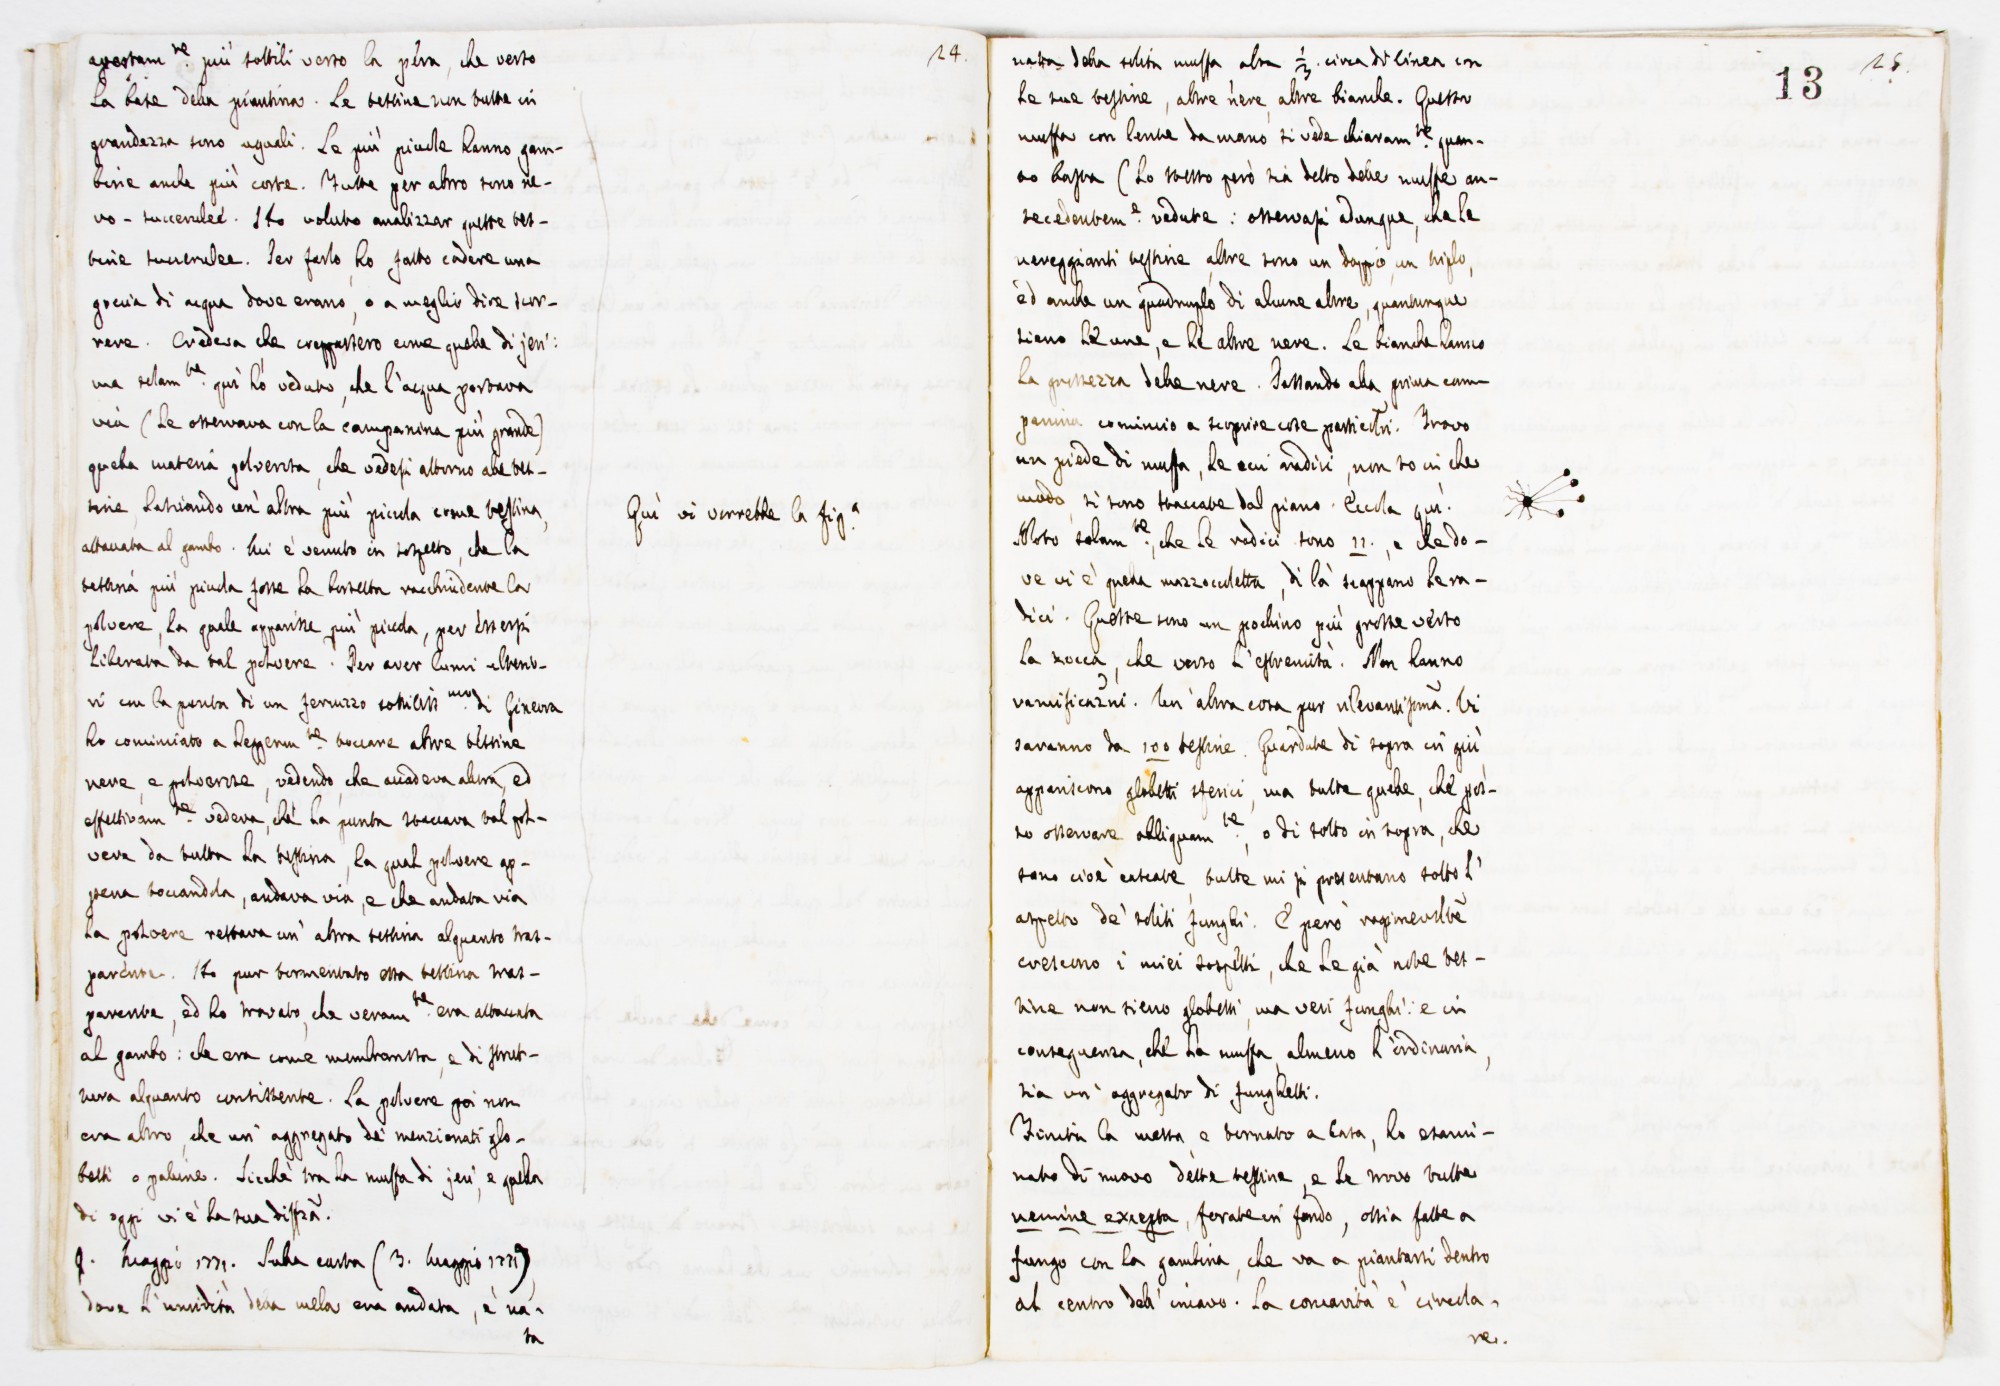 24.
apertam.te più sottili verso la pera, che verso
la base della piantina. Le testine non tutte in
grandezza sono uguali. Le più picciole hanno gam-
bine anche più corte. Tutte per altro sono ne-
ro-succerulee. Ho voluto analizzar queste tes-
tine succerulee. Per farlo, ho fatto cadere una
goccia di acqua dove erano, o a meglio dire scor-
rere. Credeva che creppassero come quelle di jeri:
ma solam.te quì hò veduto, che l'acqua portava
via (le osservava con la campanina più grande)
quella materia polverosa, che vedesi attorno alle tes-
tine, lasciando un'altra più picciola come testina,
attaccata al gambo. Mi è venuto in sospetto, che la
testina più picciola fosse la borsetta racchiudente la
polvere, la quale apparisse più picciola, per essersi
liberata da tal polvere. Per aver lumi ulterio-
ri con la punta di un ferruzzo sottiliss.mo di Ginevra
ho cominciato a leggerm.te toccare altre testine
nere, e polverose, vedendo, che accadeva altra, ed
effettivam.te vedeva, che la punta staccava tal pol-
vere da tutta la testina, la qual polvere ap-
pena toccandola, andava via, e che andata via
la polvere restava un'altra testina alquanto tras-
parente. Ho pur tormentato essa testina tras-
parente, ed ho trovato, che veram.te era attaccata
al gambo: che era come membranosa, e di strut-
tura alquanto consistente. La polvere poi non
era altro, che un'aggregato de' menzionati glo-
betti o palline. Sicchè tra la muffa di jeri, e quella
di oggi vi è la sua diffzã.
9. Maggio 1771. Sulla carta (3. Maggio 1771)
dove l'umidità della mela era andata, è na-
ta
Quì vi vorrebbe la fig.a
13
25.
nata della solita muffa alta 1/3. circa di linea con
le sue testine, altre nere, altre bianche. Questa
muffa con lente da mano si vede chiaram.te quan-
to basta (lo stesso però sia detto delle muffe an-
tecedentem.e vedute: osservasi adunque, che le
nereggianti testine altre sono un doppio, un triplo,
ed anche un quadruplo di alcune altre, quantunque
sieno le une, e le altre nere. Le bianche hanno
la grossezza delle nere. Passando alla prima cam-
panina comincio a scoprire cose particolri. Trovo
un piede di muffa, le cui radici, non so in che
modo, si sono staccate dal piano. Eccola quì.
Noto solam.te, che le radici sono 11., e che do-
ve vi è quella mazzocoletta, di là scappano le ra-
dici. Queste sono un pochino più grosse verso
la zocca, che verso l'estremità. Non hanno
ramificazni. Un'altra cosa pur rilevantissma. Vi
saranno da 100 testine. Guardate di sopra in giù
appariscono globetti sferici, ma tutte quelle, che pos-
so osservare obliquam.te, o di sotto in sopra, che
sono cioè cascate, tutte mi si presentano sotto l'
aspetto de' soliti funghi. E però ragionevolte
crescono i miei sospetti, che le già note tes-
tine non sieno globetti, ma veri funghi: e in
conseguenza, che la muffa, almeno l'ordinaria,
sia un'aggregato di funghetti.
Finita la messa e tornato a casa, ho esami-
nato di nuovo dette testine, e le trovo tutte
nemine excepta, forate in fondo, ossia fatte a
fungo con la gambina, che va a piantarsi dentro
al centro dell'incavo. La concavità è circola-
re.